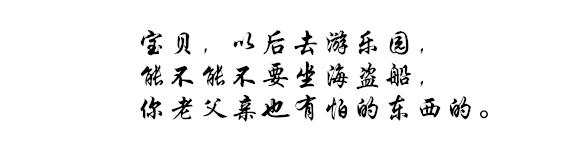 宝贝，以后去游乐园，
能不能不要坐海盗船，
你老父亲也有怕的东西的。